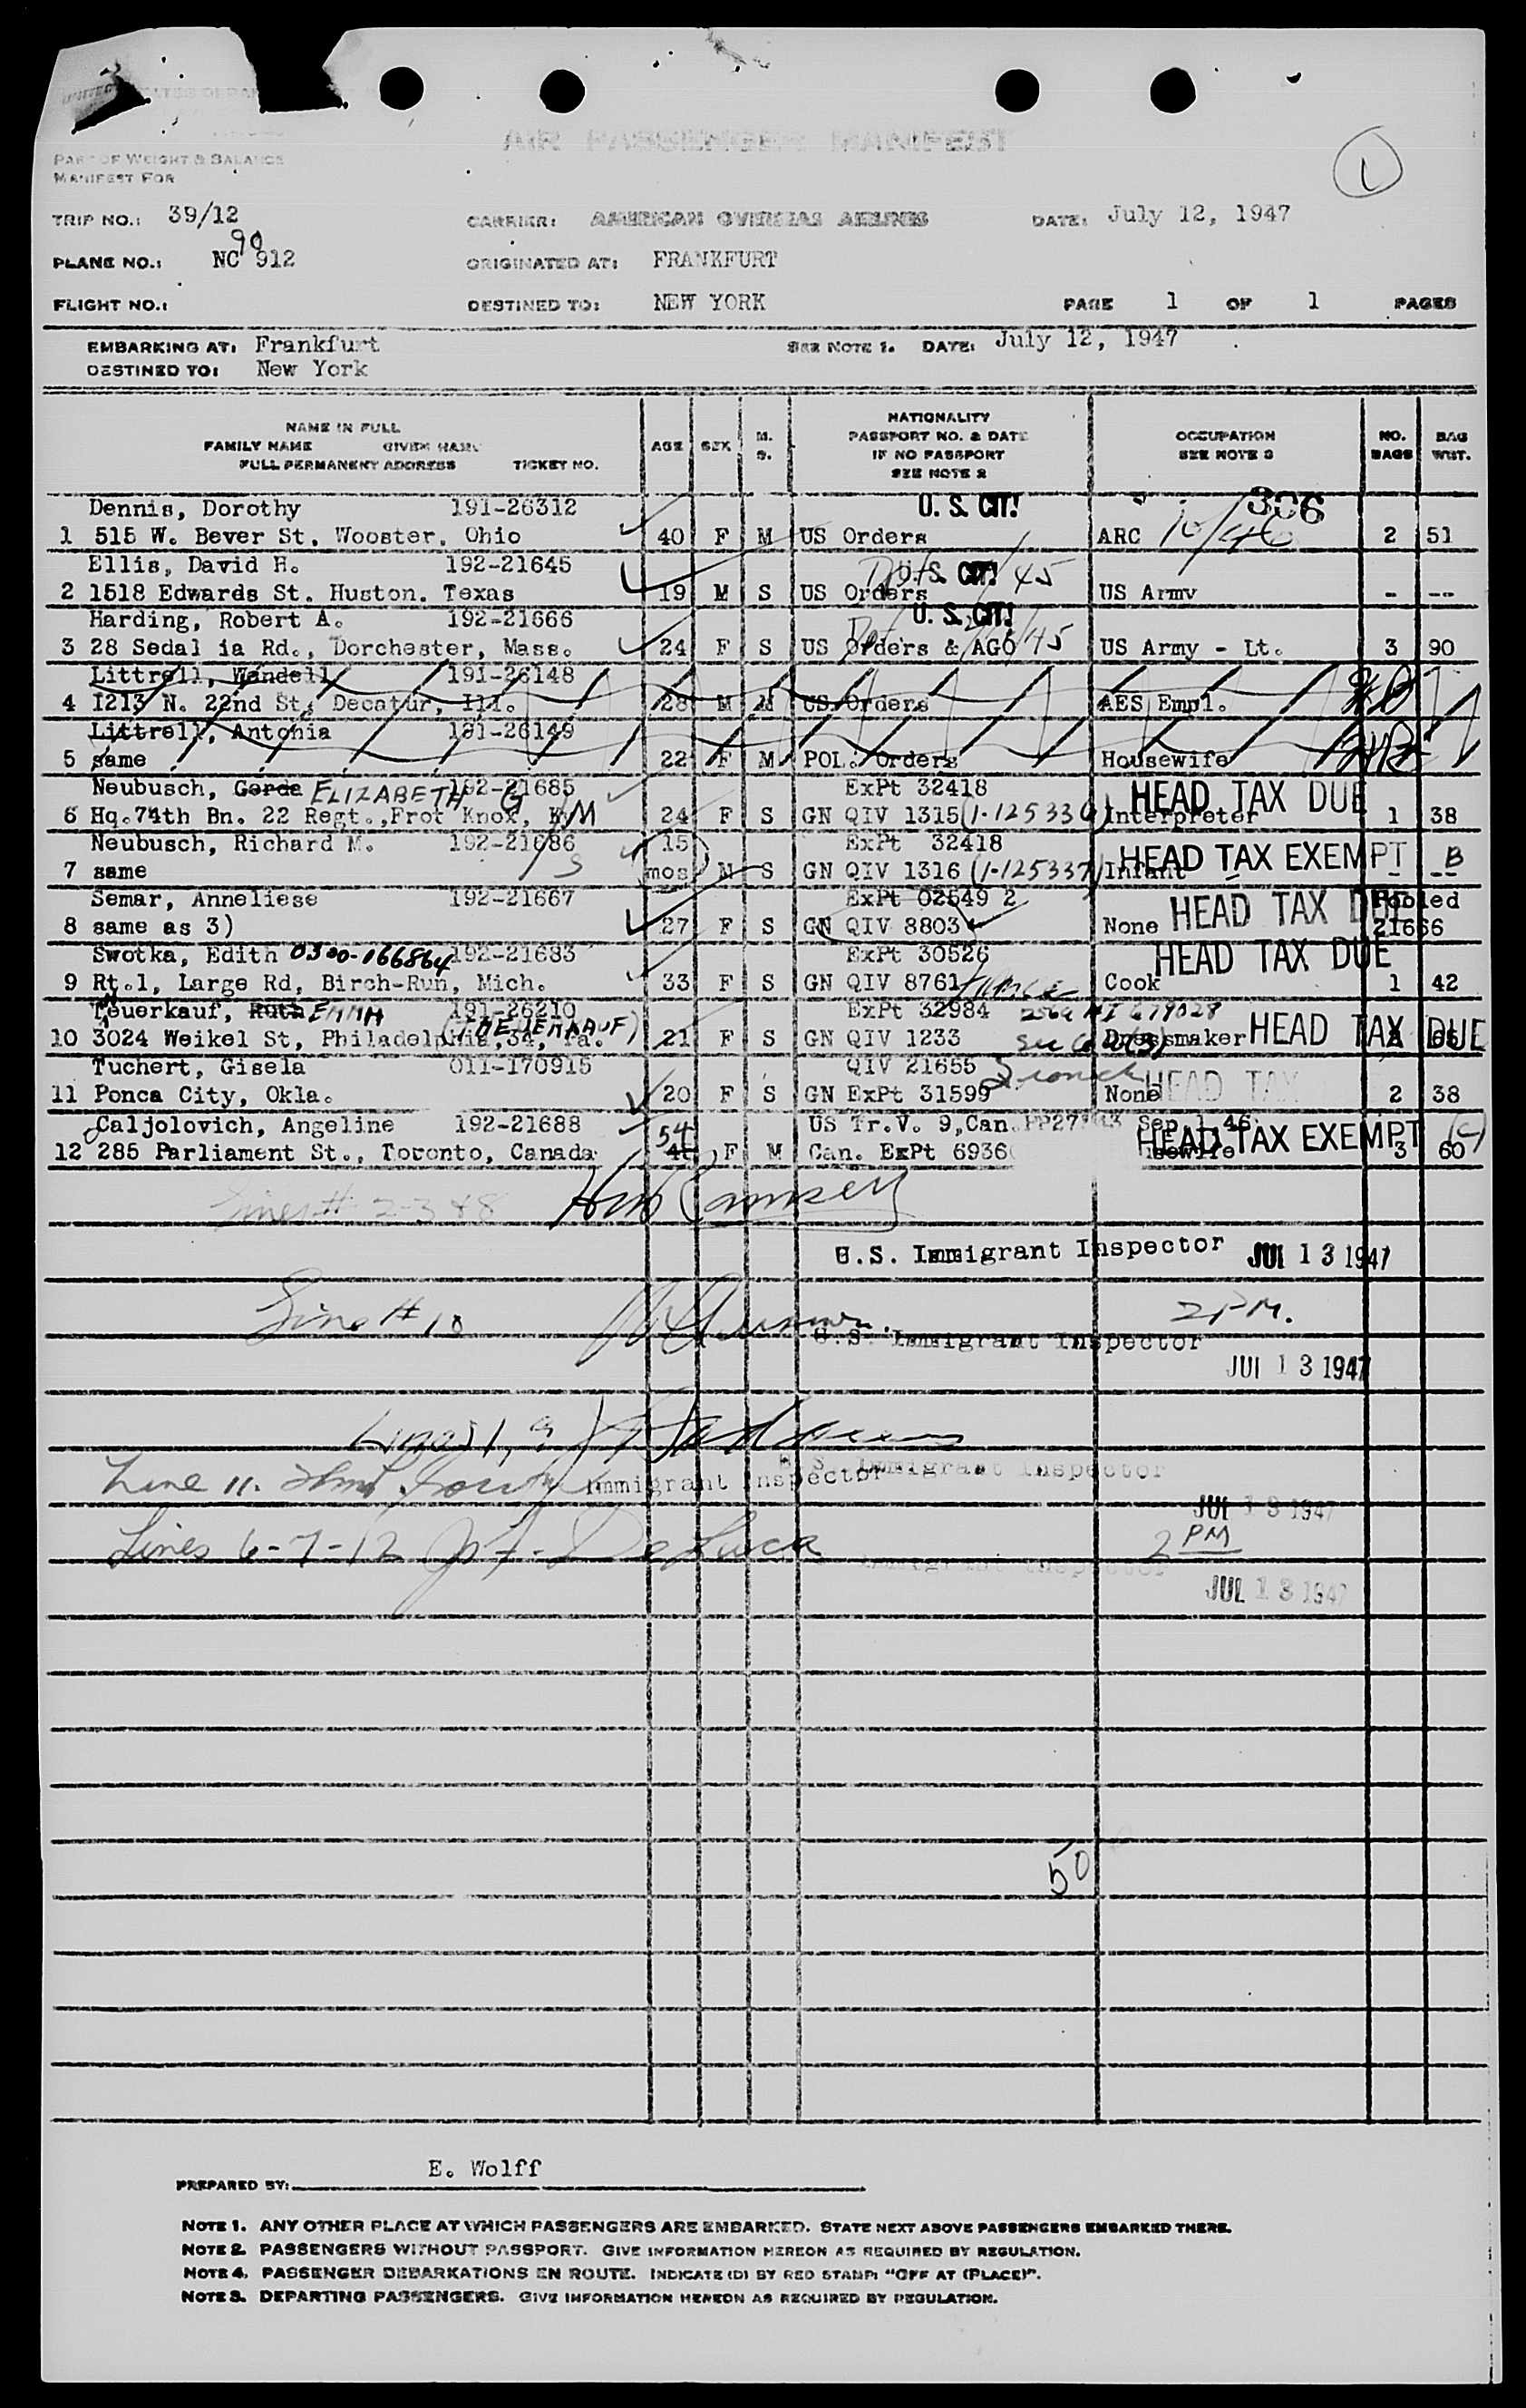 AIR PASSENGER MANIFEST
1
PART OF WEIGHT & BALANCE
MANIFEST FOR
TRIP NO.: 39/12 CARRIER: AMERICAN OVERSEAS AIRLINES DATE: July 12, 1947
90
PLANE NO.: NC 912 ORIGINATED AT: FRANKFURT
FLIGHT NO.: DESTINED TO: NEW YORK PAGE 1 OF 1 PAGES
EMBARKING AT: Frankfurt SEE NOTE 1. DATE: July 12, 1947
DESTINED TO: New York
NAME IN FULL
FAMILY NAME GIVEN NAME
FULL PERMANENT ADDRESS TICKET NO.
AGE SEX M. S.
NATIONALITY
PASSPORT NO. & DATE
IF NO PASSPORT
SEE NOTE 2
OCCUPATION
SEE NOTE 3
NO. BAGS
BAG WGT.
Dennis, Dorothy 191-26312 U. S. CIT! 306
1 515 W. Bever St, Wooster, Ohio 40 F M US Orders ARC 10/46 2 51
Ellis, David H. 192-21645 U. S. CIT! 45
2 1518 Edwards St. Huston. Texas 19 M S US Orders US Army - --
Harding, Robert A. 192-21666 U. S. CIT!
3 28 Sedal ia Rd., Dorchester, Mass. 24 F S US Orders & AGO 45 US Army - Lt. 3 90
Littrell, Wandell 191-26148
4 1213 N. 22nd St, Decatur, Ill. 28 M M US Orders AES Empl.
Littrell, Antonia 191-26149
5 same 22 F M POL. Orders Housewife
Neubusch, Gerda ELIZABETH G 192-21685 ExPt 32418 HEAD TAX DUE
6 Hq.74th Bn. 22 Regt.,Frot Knox, Ky M 24 F S GN QIV 1315 (1-125336) Interpreter 1 38
Neubusch, Richard M. 192-21686 15 ExPt 32418 HEAD TAX EXEMPT B
7 same S mos M S GN QIV 1316 (1-125337) Infant - --
Semar, Anneliese 192-21667 ExPt 02549 2 HEAD TAX DUE Pooled
8 same as 3) 27 F S GN QIV 8803 None 21666
Swotka, Edith 0300-166864 192-21683 ExPt 30526 HEAD TAX DUE
9 Rt.1, Large Rd, Birch-Run, Mich. 33 F S GN QIV 8761 Cook 1 42
Teuerkauf, Ruth EMMA 191-26210 ExPt 32984
10 3024 Weikel St, Philadelphia,34, Pa. 21 F S GN QIV 1233 Dressmaker HEAD TAX DUE
Tuchert, Gisela 011-170915 QIV 21655
11 Ponca City, Okla. 20 F S GN ExPt 31599 None HEAD TAX 2 38
Caljolovich, Angeline 192-21688 54 US Tr.V. 9,Can. Sep 1 46
12 285 Parliament St., Toronto, Canada F M Can. ExPt 6936 HEAD TAX EXEMPT (C) 3 60
Lines # 2-3 & 8
U.S. Immigrant Inspector JUL 13 1947
Line # 10 2 PM.
U.S. Immigrant Inspector
JUL 13 1947
Lines 1, 9
U.S. Immigrant Inspector
Line 11. Immigrant Inspector
JUL 13 1947
Lines 6-7-12 De Luca 2 PM
Immigrant Inspector
JUL 13 1947
50
PREPARED BY: E. Wolff
NOTE 1. ANY OTHER PLACE AT WHICH PASSENGERS ARE EMBARKED. STATE NEXT ABOVE PASSENGERS EMBARKED THERE.
NOTE 2. PASSENGERS WITHOUT PASSPORT. GIVE INFORMATION HEREON AS REQUIRED BY REGULATION.
NOTE 4. PASSENGER DEBARKATIONS EN ROUTE. INDICATE (D) BY RED STAMP: "OFF AT (PLACE)".
NOTE 3. DEPARTING PASSENGERS. GIVE INFORMATION HEREON AS REQUIRED BY REGULATION.